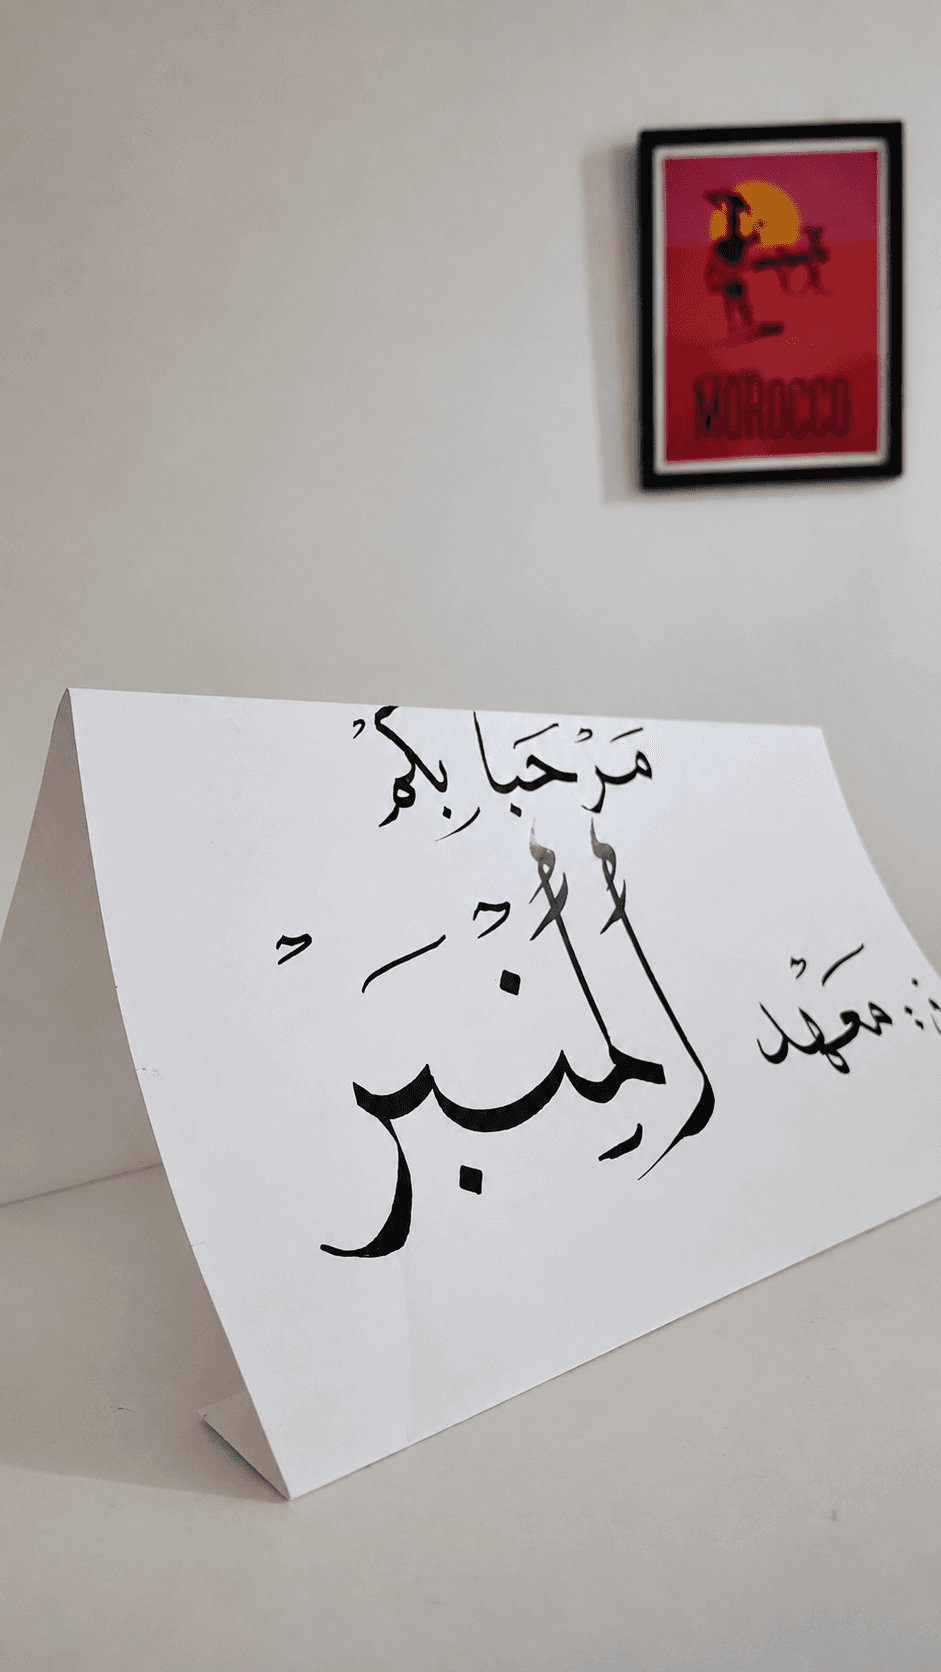 MOROCCO
مَرْحَبا بِكُمْ
: مَعْهَد
الْمِنْبَرْ